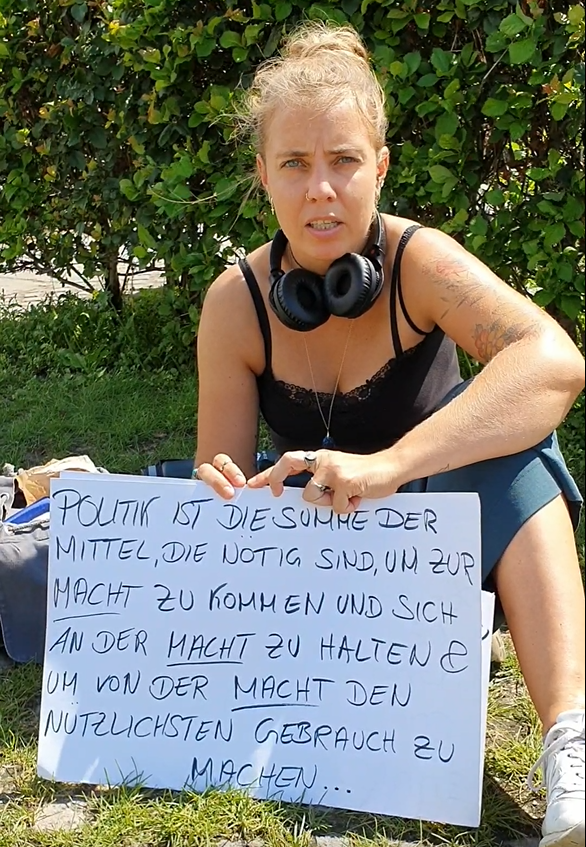 POLITIK IST DIE SUMME DER
MITTEL, DIE NÖTIG SIND, UM ZUR
MACHT ZU KOMMEN UND SICH
AN DER MACHT ZU HALTEN &
UM VON DER MACHT DEN
NÜTZLICHSTEN GEBRAUCH ZU
MACHEN...